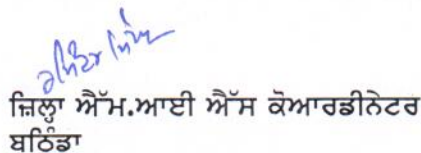 ਜ਼ਿਲ੍ਹਾ ਐੱਮ.ਆਈ ਐੱਸ ਕੋਆਰਡੀਨੇਟਰ
ਬਠਿੰਡਾ